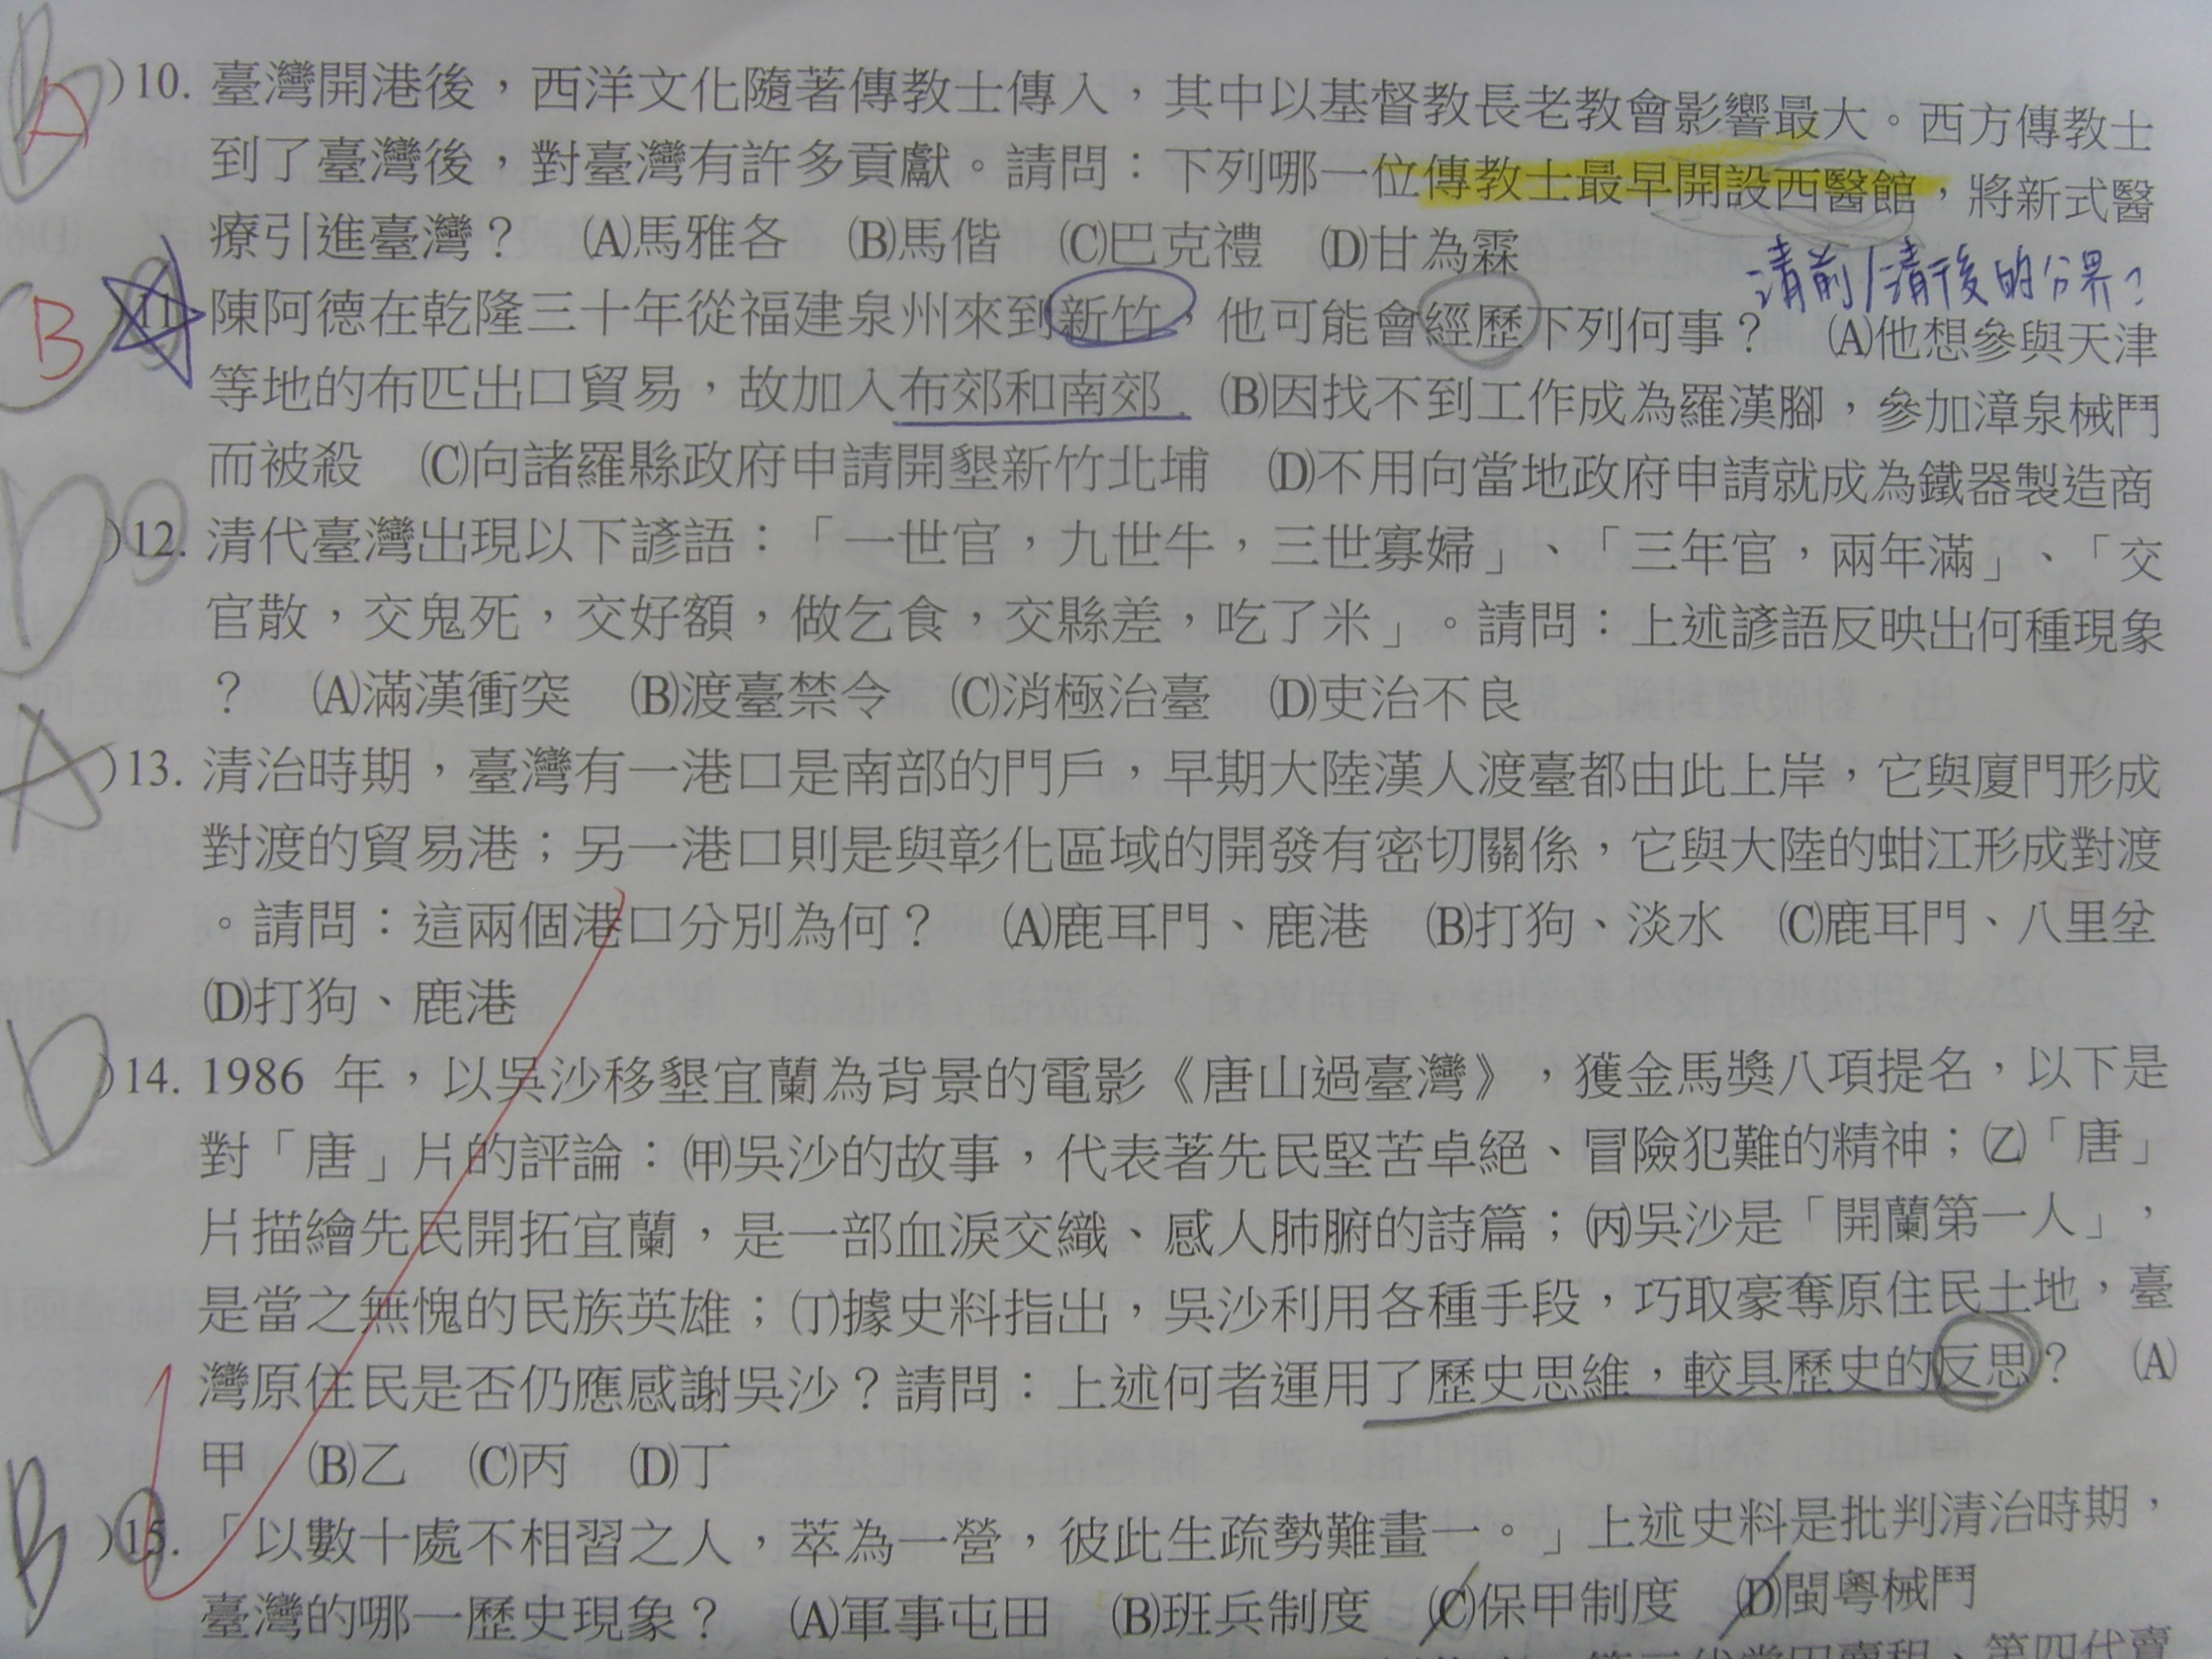 B A )10. 臺灣開港後，西洋文化隨著傳教士傳入，其中以基督教長老教會影響最大。西方傳教士
到了臺灣後，對臺灣有許多貢獻。請問：下列哪一位傳教士最早開設西醫館，將新式醫
療引進臺灣？ (A)馬雅各 (B)馬偕 (C)巴克禮 (D)甘為霖
清前/清後的分界?
B )11. 陳阿德在乾隆三十年從福建泉州來到新竹，他可能會經歷下列何事？ (A)他想參與天津
等地的布匹出口貿易，故加入布郊和南郊 (B)因找不到工作成為羅漢腳，參加漳泉械鬥
而被殺 (C)向諸羅縣政府申請開墾新竹北埔 (D)不用向當地政府申請就成為鐵器製造商
D )12. 清代臺灣出現以下諺語：「一世官，九世牛，三世寡婦」、「三年官，兩年滿」、「交
官散，交鬼死，交好額，做乞食，交縣差，吃了米」。請問：上述諺語反映出何種現象
？ (A)滿漢衝突 (B)渡臺禁令 (C)消極治臺 (D)吏治不良
A )13. 清治時期，臺灣有一港口是南部的門戶，早期大陸漢人渡臺都由此上岸，它與廈門形成
對渡的貿易港；另一港口則是與彰化區域的開發有密切關係，它與大陸的蚶江形成對渡
。請問：這兩個港口分別為何？ (A)鹿耳門、鹿港 (B)打狗、淡水 (C)鹿耳門、八里坌
(D)打狗、鹿港
D )14. 1986 年，以吳沙移墾宜蘭為背景的電影《唐山過臺灣》，獲金馬獎八項提名，以下是
對「唐」片的評論：(甲)吳沙的故事，代表著先民堅苦卓絕、冒險犯難的精神；(乙)「唐」
片描繪先民開拓宜蘭，是一部血淚交織、感人肺腑的詩篇；(丙)吳沙是「開蘭第一人」，
是當之無愧的民族英雄；(丁)據史料指出，吳沙利用各種手段，巧取豪奪原住民土地，臺
灣原住民是否仍應感謝吳沙？請問：上述何者運用了歷史思維，較具歷史的反思？ (A)
甲 (B)乙 (C)丙 (D)丁
B )15. 「以數十處不相習之人，萃為一營，彼此生疏勢難畫一。」上述史料是批判清治時期，
臺灣的哪一歷史現象？ (A)軍事屯田 (B)班兵制度 (C)保甲制度 (D)閩粵械鬥